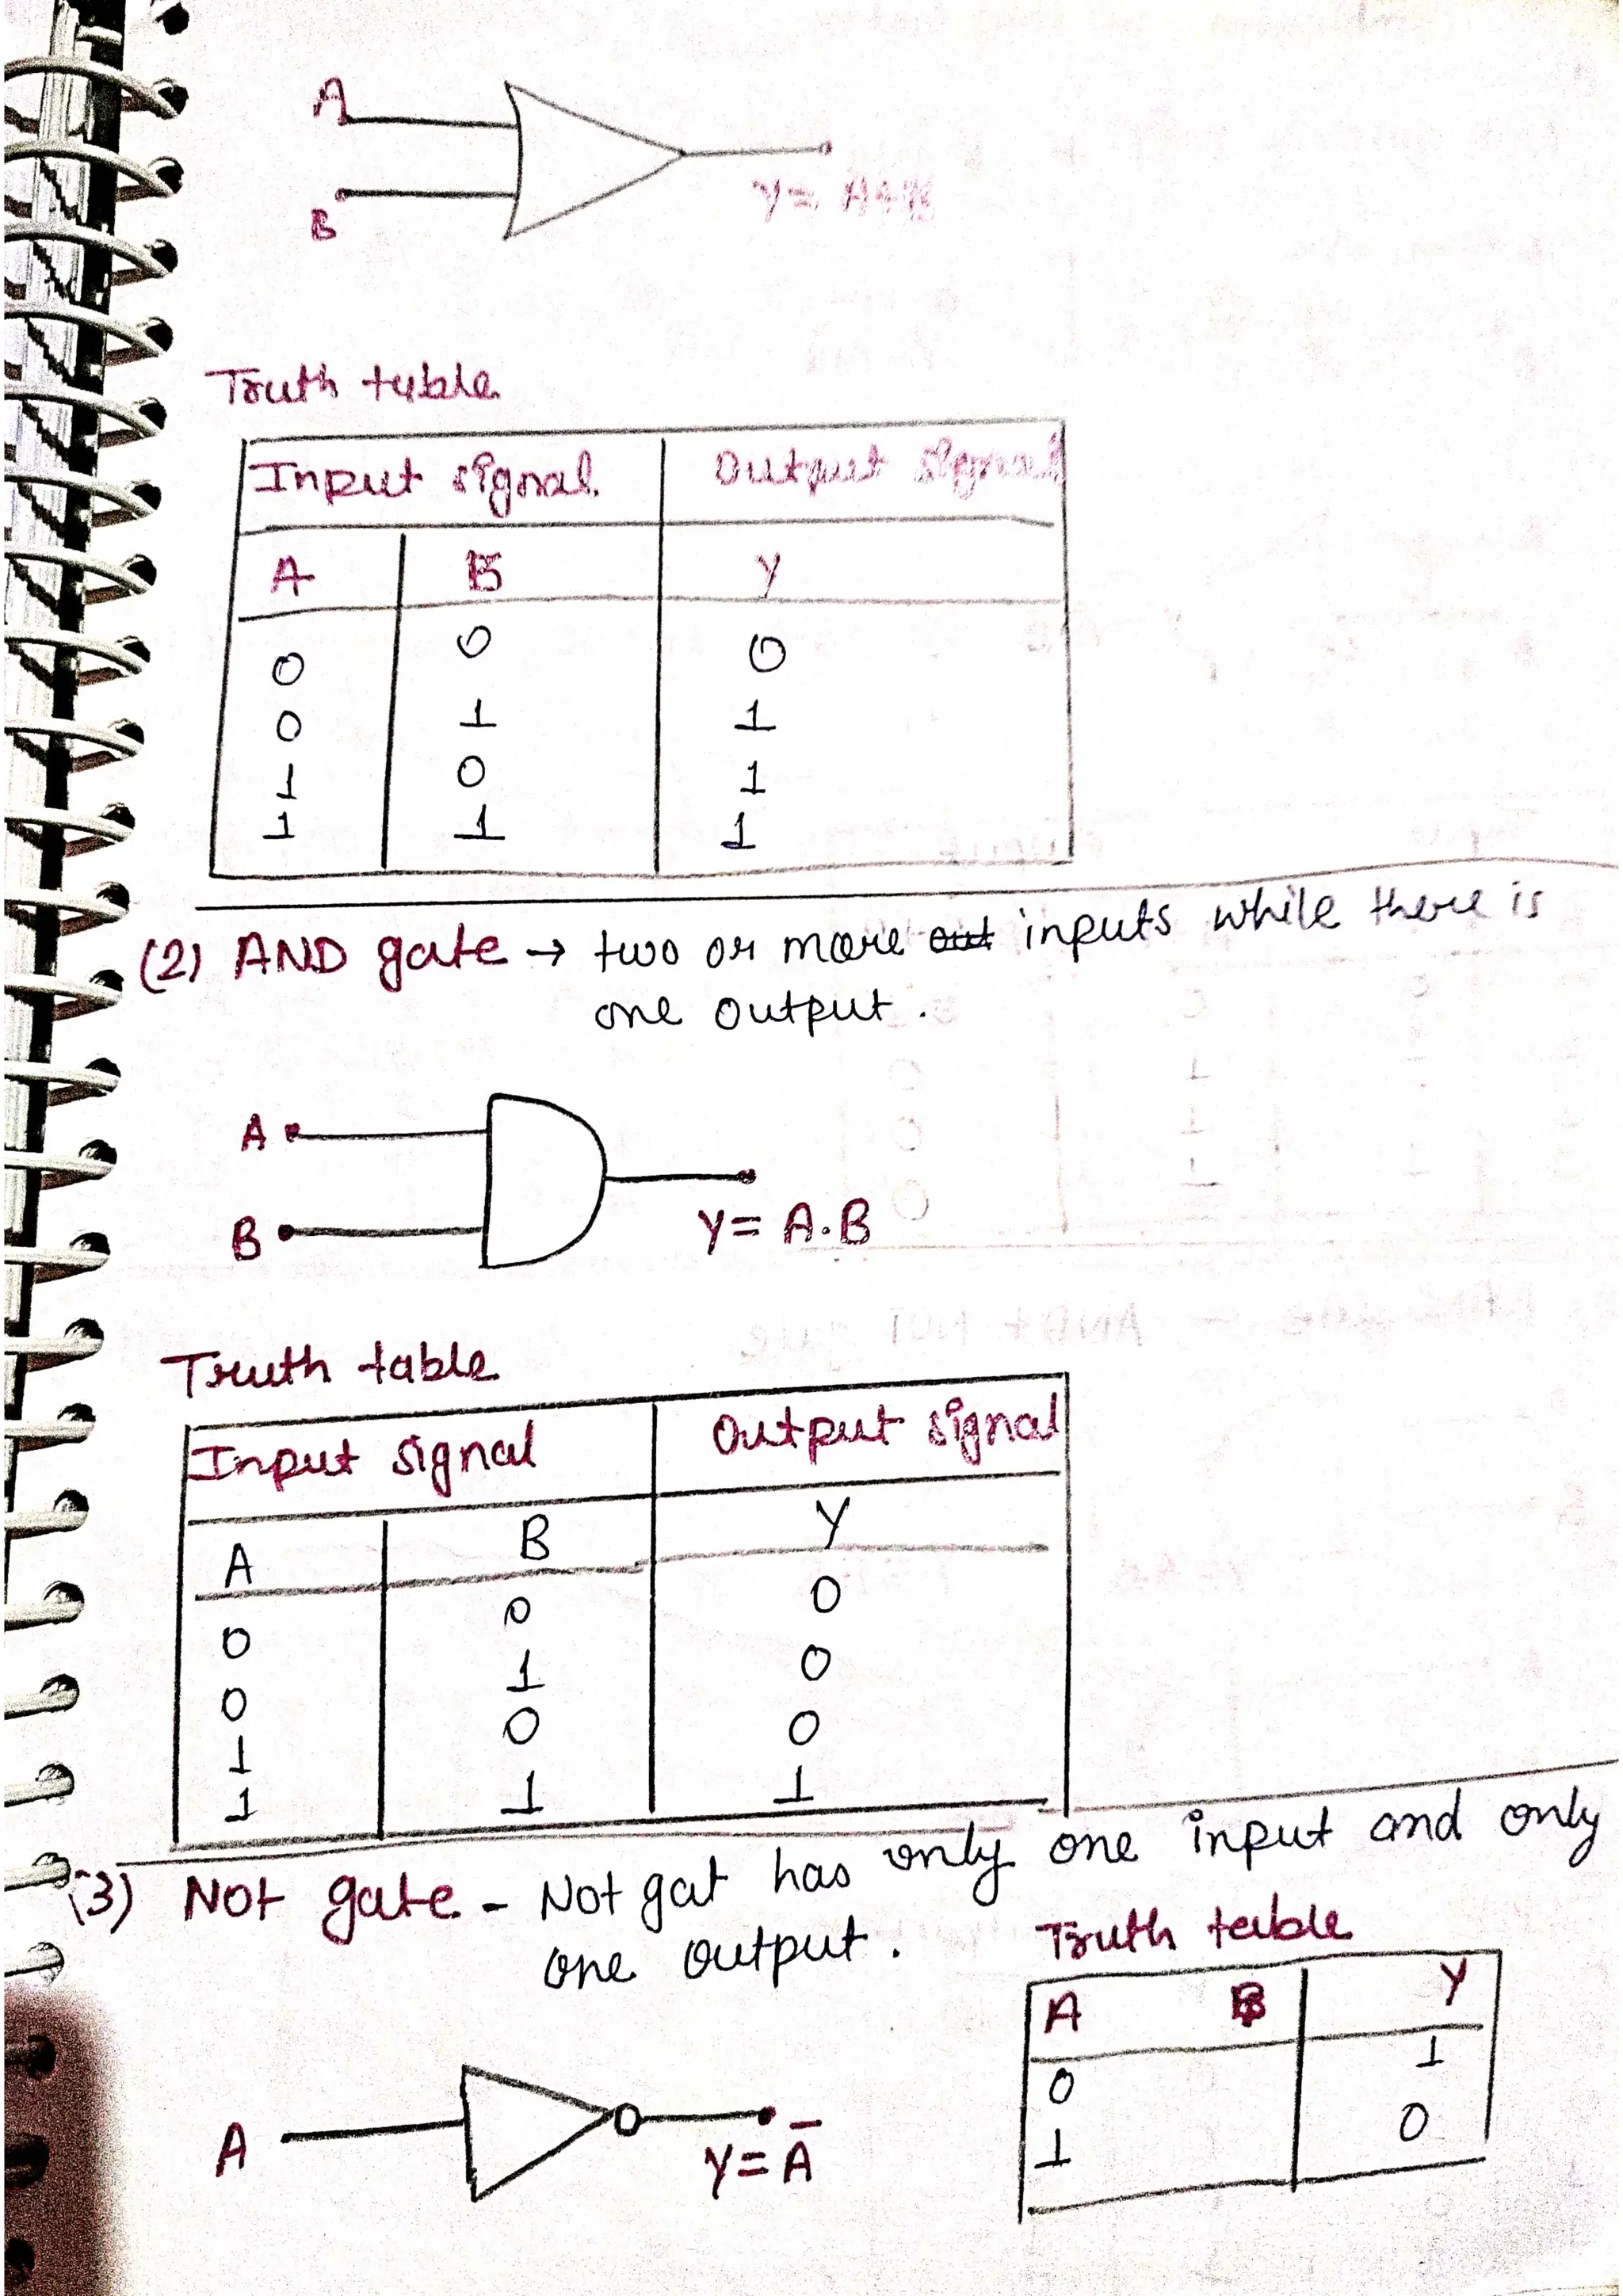 A
B
Y= A+B
Truth table
Input signal Output signal
A B Y
0 0 0
0 1 1
1 0 1
1 1 1
(2) AND gate → two or more out inputs while there is
one output.
A
B
Y= A.B
Truth table
Input signal Output signal
A B Y
0 0 0
0 1 0
1 0 0
1 1 1
(3) Not gate - Not gat has only one input and only
one output.
Truth table
A B Y
0 1
1 0
A
Y= Ā